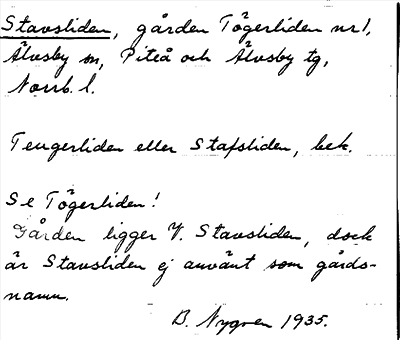 Stavsliden, gården Tögerliden nr 1,
Älvsby sn, Piteå och Älvsby tg,
Norrb. l.
Tengerliden eller Stafsliden, bek.
Se Tögerliden!
Gården ligger V. Stavsliden, dock
är Stavsliden ej använt som gårds-
namn.
B. Nygren 1935.